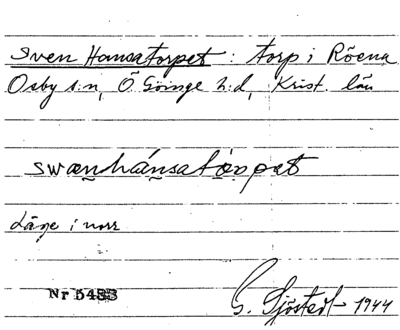 Sven Hansatorpet: torp i Röena
Osby s:n, Ö Göinge h:d, Krist. län
swænhánsatòrpæt
Läge i norr
Nr 5483
G. Sjöstedt 1944